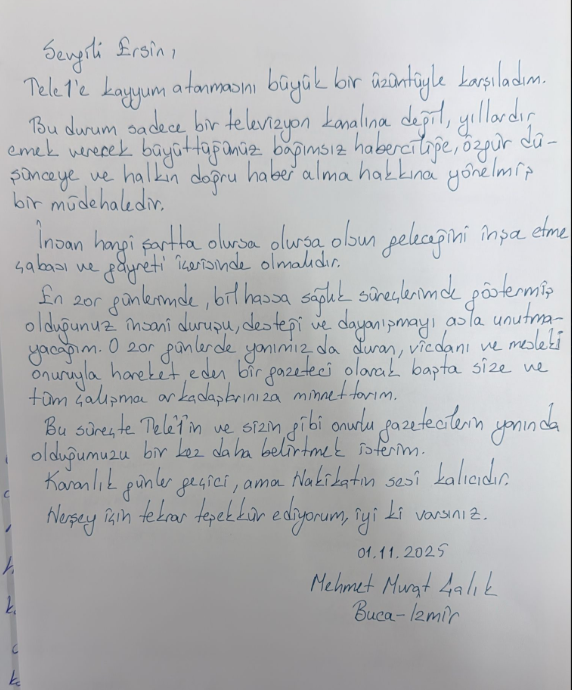 Sevgili Ersin,
Tele1'e kayyum atanmasını büyük bir üzüntüyle karşıladım.
Bu durum sadece bir televizyon kanalına değil, yıllardır
emek vererek büyüttüğünüz bağımsız haberciliğe, özgür dü-
şünceye ve halkın doğru haber alma hakkına yönelmiş
bir müdehaledir.
İnsan hangi şartta olursa olursa olsun geleceğini inşa etme
çabası ve gayreti içerisinde olmalıdır.
En zor günlerimde, bilhassa sağlık süreçlerimde göstermiş
olduğunuz insani duruşu, desteği ve dayanışmayı asla unutma-
yacağım. O zor günlerde yanımızda duran, vicdanı ve mesleki
onuruyla hareket eden bir gazeteci olarak başta size ve
tüm çalışma arkadaşlarınıza minnettarım.
Bu süreçte Tele1'in ve sizin gibi onurlu gazetecilerin yanında
olduğumuzu bir kez daha belirtmek isterim.
Karanlık günler geçici, ama Hakikatın sesi kalıcıdır.
Herşey için tekrar teşekkür ediyorum, iyi ki varsınız.
01.11.2025
Mehmet Murat Çalık
Buca-İzmir